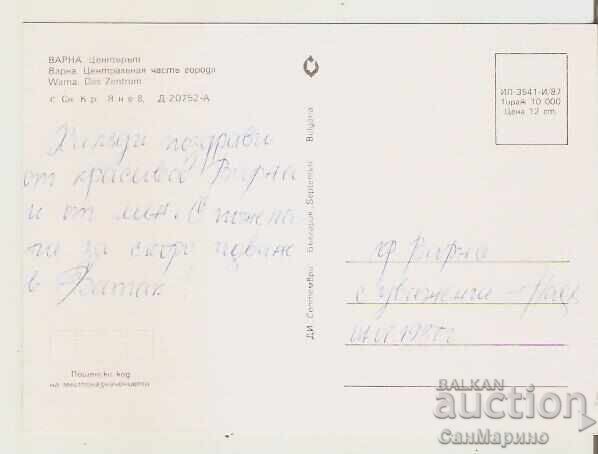 ВАРНА. Центърът
Варна. Центральная часть города
Warna. Das Zentrum
с Сн. Кр. Янев, Д-20752-А
Хиляди поздрави
от красива Варна
и от мен. С
за скоро
в Батак!
Пощенски код
на местоназначението
ДИ „Септември" България Septemvri Bulgaria
ИЛ-3541-И/87
Тираж 10 000
Цена 12 ст.
гр Варна
с уважение
BALKAN
auction
СанМарино